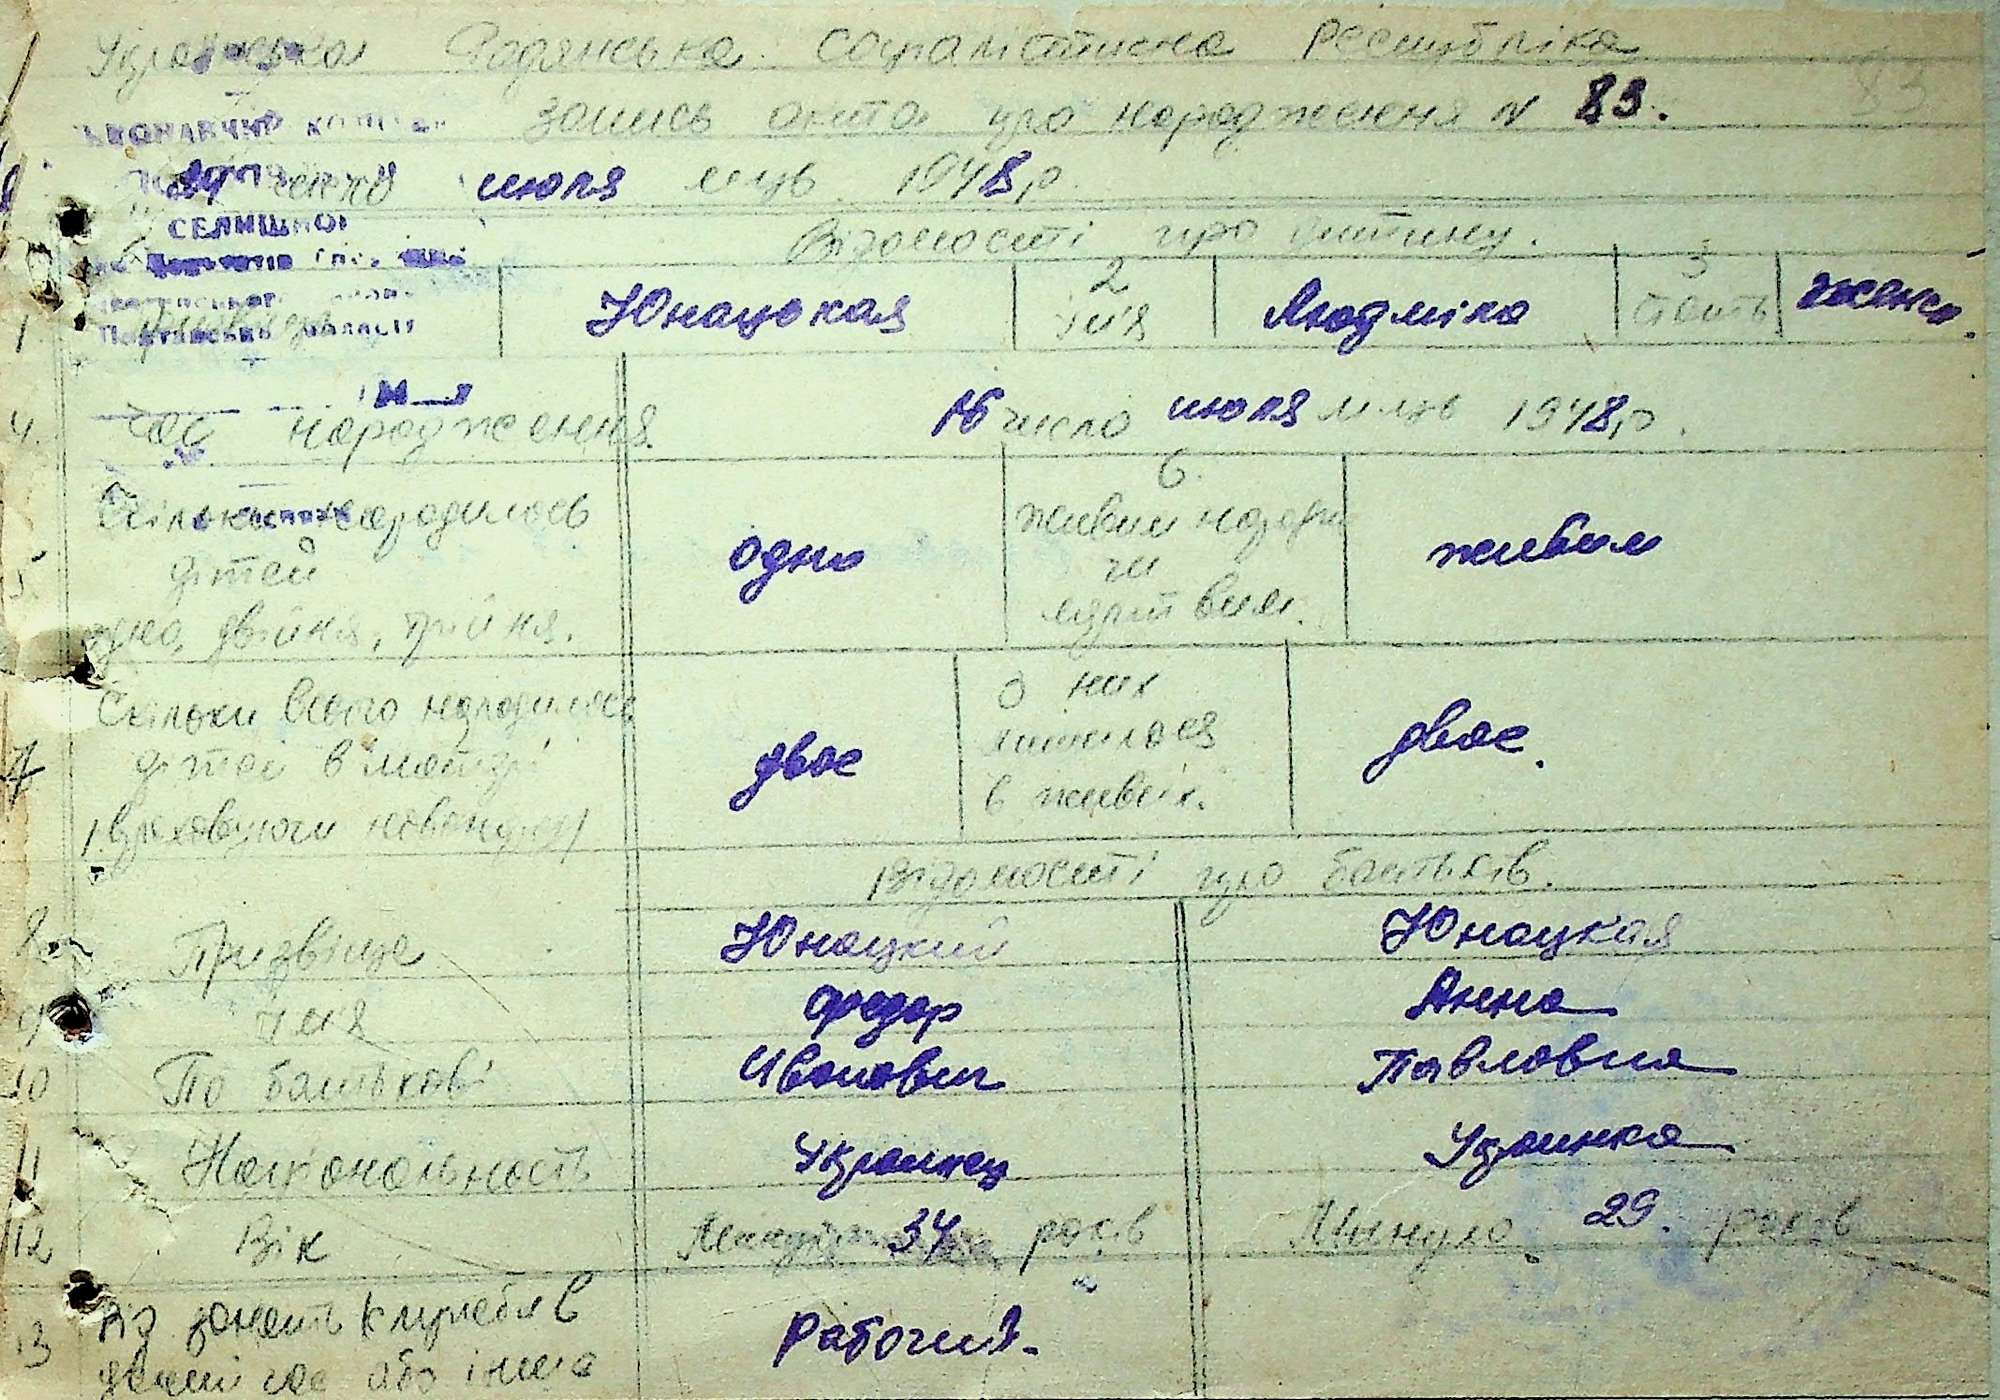 Українська Радянська Соціалістична Республіка
Запись акта про народження N 83.
83
ВИКОНАВЧИЙ КОМІТЕТ
СЕЛИЩНОЇ
Полтавської області
24 число июля м-ць 1948 р.
Відомості про дитину.
1 Прізвище Юнацькая 2 Ім'я Людміла 3 Стать женск.
4. Час народження 16 число июля м-ць 1948 р.
5 Скільки народилось дітей одно, двійня, трійня. одно 6. живим народи чи мертвим. живим
7 Скільки всього народилось дітей в матері /враховуючи новонар/ двое З них лишилося в живих. двое.
Відомості про батьків.
8 Призвіще Юнацкий Юнацкая
9 Імя Федор Анна
10 По батькові Иванович Павловна
11 Національность Украинец Украинка
12 Вік Минуло 34 років Минуло 29. років
13 Від занять або інше Рабочий.